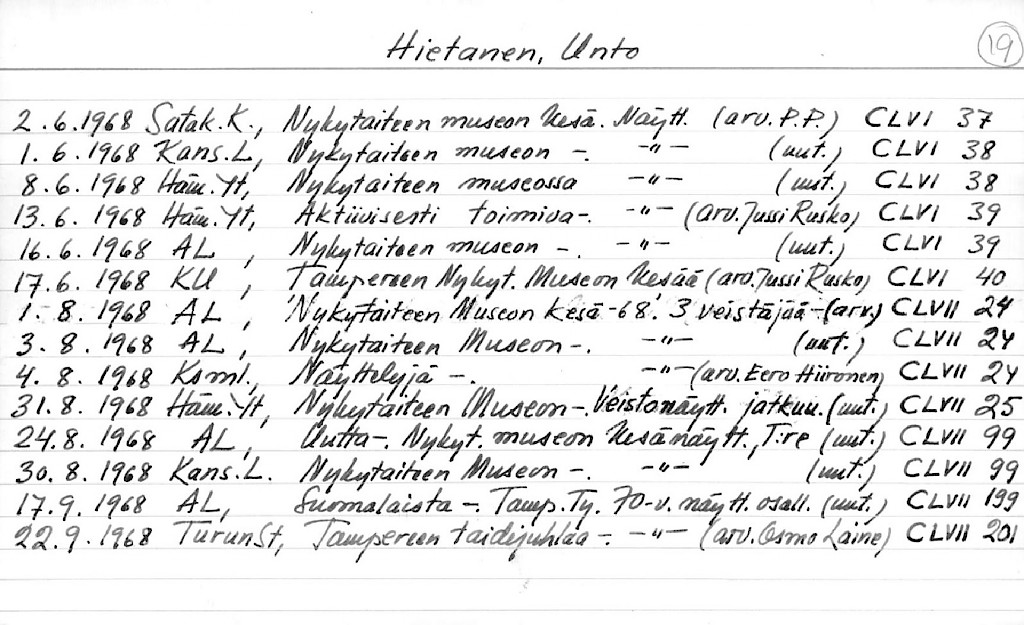 Hietanen, Unto
19
2.6.1968 Satak.K., Nykytaiteen museon Kesä. Näytt. (arv. P.P.) CLVI 37
1.6.1968 Kans.L, Nykytaiteen museon -. -"- (uut.) CLVI 38
8.6.1968 Häm.Yt, Nykytaiteen museossa -"- (uut.) CLVI 38
13.6.1968 Häm.Yt, Aktiivisesti toimiva-. -"- (arv. Jussi Rusko) CLVI 39
16.6.1968 AL, Nykytaiteen museon -. -"- (uut.) CLVI 39
17.6.1968 KU, Tampereen Nykyt. Museon Kesää (arv. Jussi Rusko) CLVI 40
1.8.1968 AL, 'Nykytaiteen Museon kesä-68'. 3 veistäjää-(arv.) CLVII 24
3.8.1968 AL, Nykytaiteen Museon-. -"- (uut.) CLVII 24
4.8.1968 Ksml., Näyttelyjä -. -"- (arv. Eero Hiironen) CLVII 24
31.8.1968 Häm.Yt, Nykytaiteen Museon-. Veistonäytt. jatkuu. (uut.) CLVII 25
24.8.1968 AL, Uutta-. Nykyt. museon Kesänäytt., T:re (uut.) CLVII 99
30.8.1968 Kans.L. Nykytaiteen Museon -. -"- (uut.) CLVII 99
17.9.1968 AL, Suomalaista -. Tamp. Ty. 70-v. näytt. osall. (uut.) CLVII 199
22.9.1968 TurunSt, Tampereen taidejuhlaa -. -"- (arv. Osmo Laine) CLVII 201